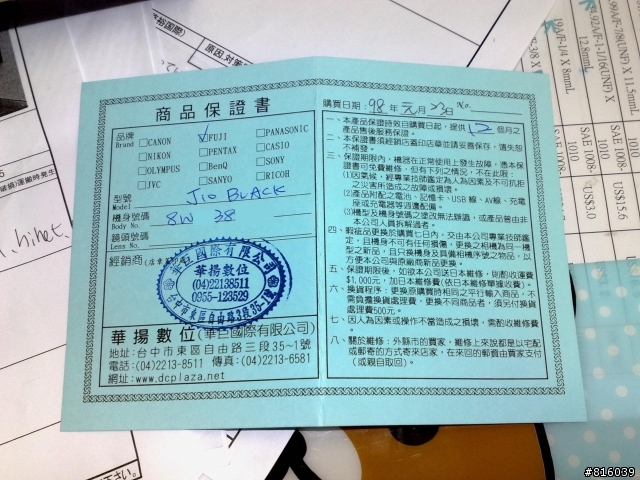 商品保證書
品牌 Brand
□CANON ☑FUJI □PANASONIC
□NIKON □PENTAX □CASIO
□OLYMPUS □BenQ □SONY
□JVC □SANYO □RICOH
型號 Model JIO BLACK
機身號碼 Body No. 8W 38
鏡頭號碼 Lens No.
經銷商
華揚數位
(04)22138511
0955-123529
華揚數位(華邑國際有限公司)
地址:台中市東區自由路三段35~1號
電話:(04)2213-8511 傳真:(04)2213-6581
網址:www.dcplaza.net
購買日期:98年元月23日 No.
一、本產品保證時效自購買日起,提供12個月之
產品售後服務保證。
二、本保證書須經銷店蓋印店章並請妥善保存,遺失恕
不補發。
三、保證期限內,機器在正常使用上發生故障,憑本保
證書可免費維修,但有下列之情況,不在此限:
(1)因素候,經專業技師鑑定為人為因素及不可抗拒
之災害所造成之故障或損壞。
(2)產品附配之電池、記憶卡、USB線、AV線、充電
座或充電器等週邊配備。
(3)機型及機身號碼之塗改無法辨識,或產品曾由非
本公司人員拆解過者。
四、瑕疵品更換於購買七日內,交由本公司專業技師鑑
定,且機身不可有任何損傷,更換之相機為同一機
型之新品,且只換機身及具備相機序號之物品,以
方便本公司與原廠商新品更換。
五、保證期限後,如欲本公司送日本維修,則酌收運費
$1,000元,加日本維修費(依日本維修單據收費)。
六、換貨程序:更換原購買時相同之平行輸入商品,不
需負擔換貨處理費,更換不同商品者,須另付換貨
處理費500元。
七、因人為因素或操作不當造成之損壞,需酌收維修費
八、關於維修:外縣市的買家,維修上來說都是以宅配
或郵寄的方式寄來店家,在來回的郵資由買家支付
(或親自取回)。
hinet.
12.8mm
1010
SAE 1008-
1010
US$15.6
US$15.0
#816039